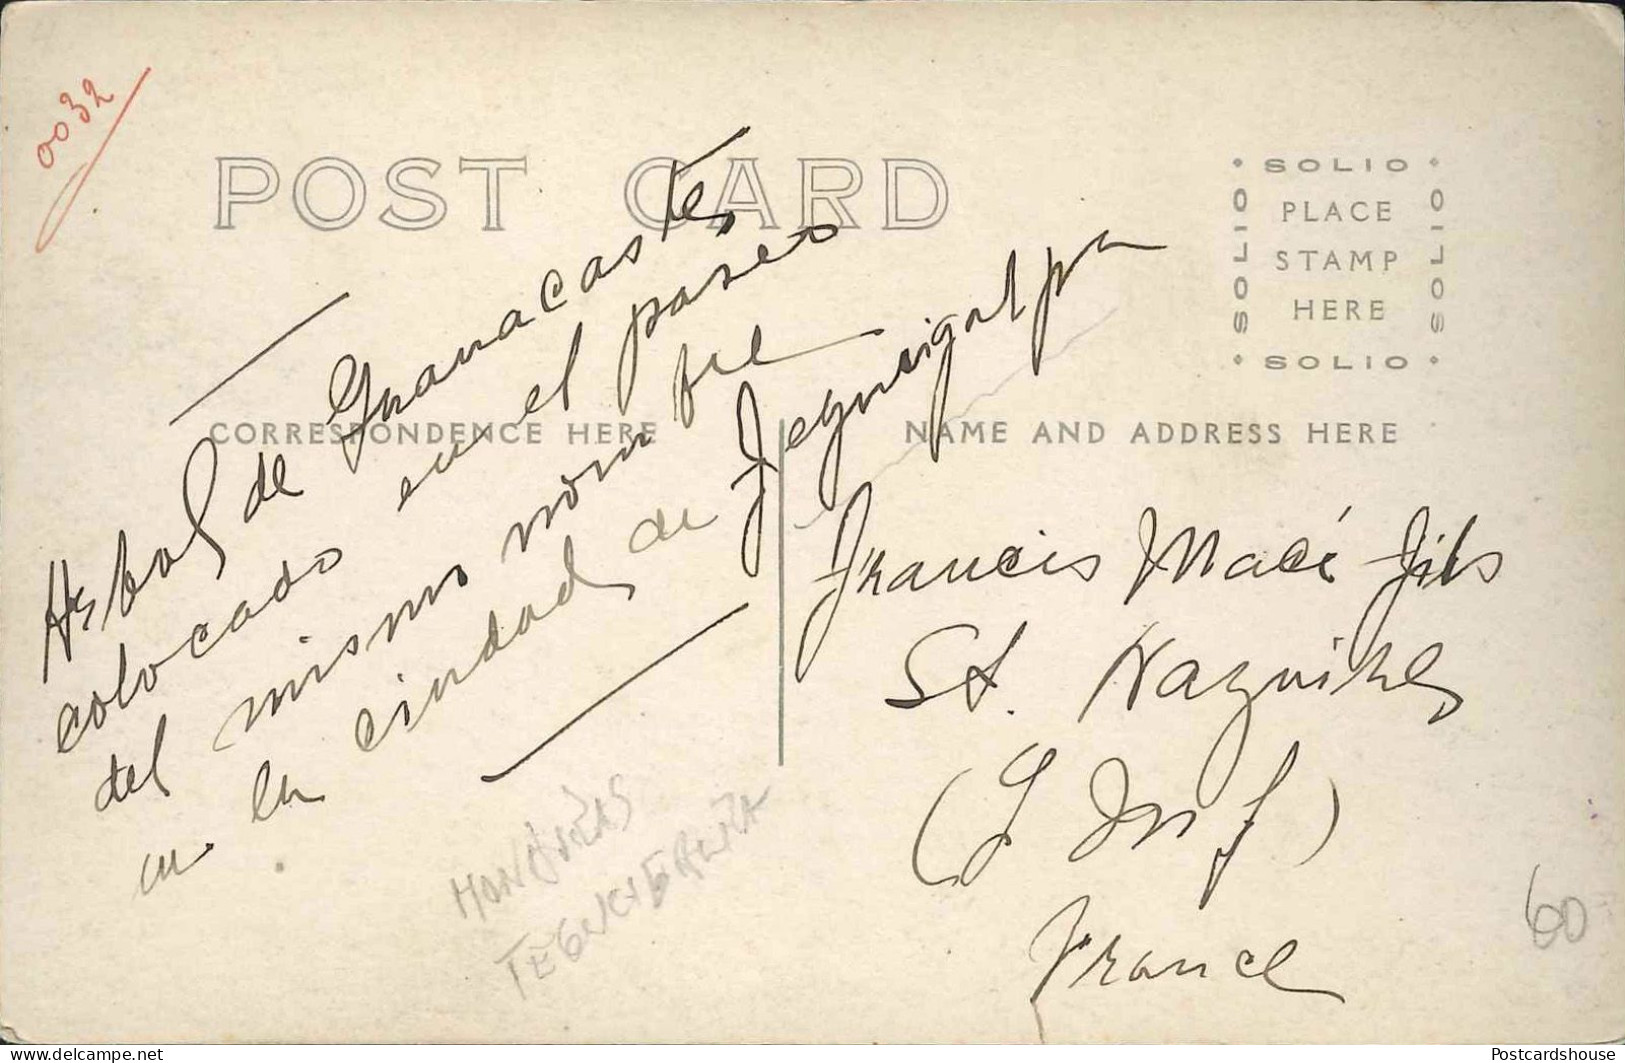 0032
POST CARD
SOLIO
SOLIO
PLACE
STAMP
HERE
SOLIO
SOLIO
CORRESPONDENCE HERE
NAME AND ADDRESS HERE
Arbol de Guanacaste
colocado en el paseo
del mismo nombre
en la ciudad de
Francis Macé fils
St.
(L Inf)
France
TEGUCIGALPA
60
delcampe.net
Postcardshouse